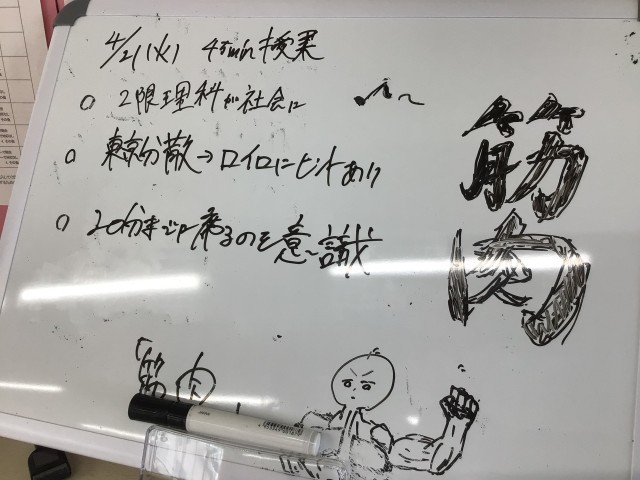 4/21(火) 45min授業
○ 2限理科が社会に
○ 東京分散→ロイロにヒントあり
○ 20分までに帰るのを意識
筋肉
「筋肉」